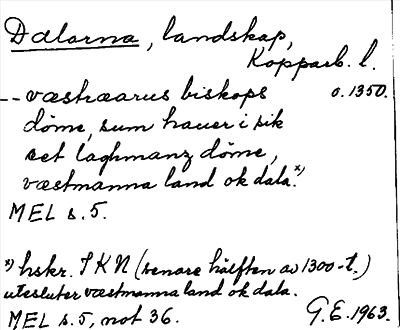 Dalarna, landskap,
Kopparb. l.
-- væstræarus biskops o. 1350.
döme, sum hauer i sik
eet laghmanz döme,
væstmanna land ok dala.x)
MEL s. 5.
x) hskr. I K N (senare hälften av 1300-t.)
utesluter væstmanna land ok dala.
MEL s. 5, not 36. G.E. 1963.